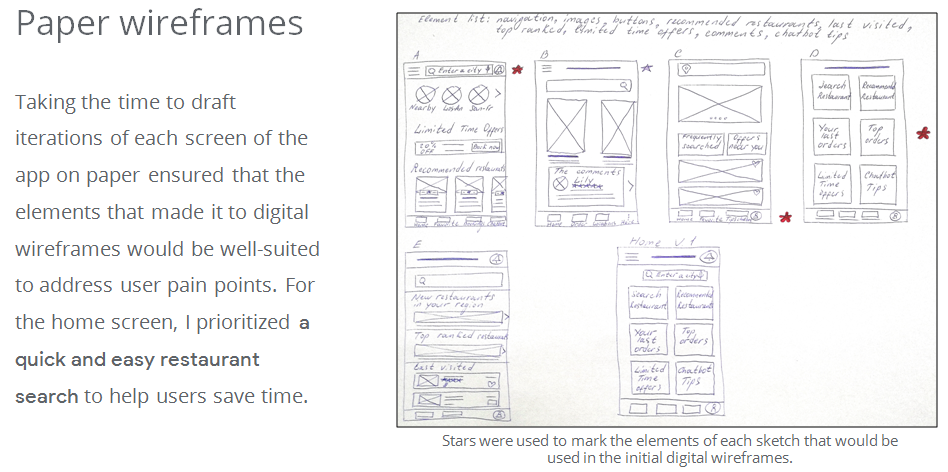 Paper wireframes
Taking the time to draft
iterations of each screen of the
app on paper ensured that the
elements that made it to digital
wireframes would be well-suited
to address user pain points. For
the home screen, I prioritized a
quick and easy restaurant
search to help users save time.
Element list: navigation, images, buttons, recommended restaurants, last visited,
top ranked, limited time offers, comments, chatbot tips
A
Enter a city
Nearby
Limited Time Offers
20%
OFF
Book now
Recommended restaurants
B
The comments
Lily
C
Frequently
searched
Offers
near you
D
Search
Restaurant
Recommended
Restaurant
Your
last
orders
Top
orders
Limited
Time
offers
Chatbot
Tips
E
New restaurants
in your region
Top ranked restaurants
Last visited
Home V1
Enter a city
Search
Restaurant
Recommended
Restaurant
Your
last
orders
Top
orders
Limited
Time
offers
Chatbot
Tips
Stars were used to mark the elements of each sketch that would be
used in the initial digital wireframes.